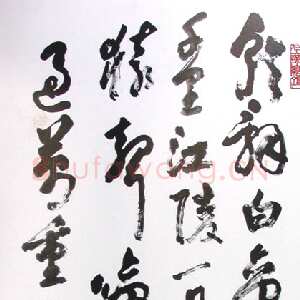 朝辞白帝
千里江陵一日
猿聲啼
過萬重
Shufawang.CN